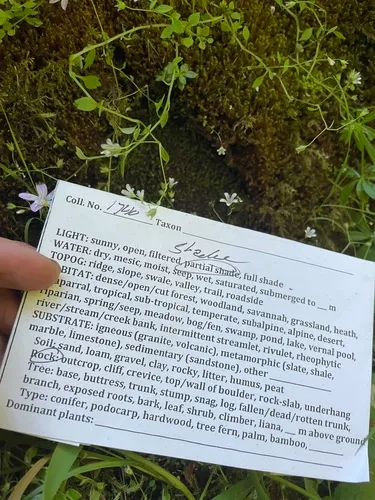 Coll. No. 1766 Taxon
LIGHT: sunny, open, filtered, partial shade, full shade
WATER: dry, mesic, moist, seep, wet, saturated, submerged to __ m
TOPOG: ridge, slope, swale, valley, trail, roadside
HABITAT: dense/open/cut forest, woodland, savannah, grassland, heath,
chaparral, tropical, sub-tropical, temperate, subalpine, alpine, desert,
riparian, spring/seep, meadow, bog/fen, swamp, pond, lake, vernal pool,
river/stream/creek bank, intermittent streamlet, rivulet, rheophytic
SUBSTRATE: igneous (granite, volcanic), metamorphic (slate, shale,
marble, limestone), sedimentary (sandstone), other
Soil: sand, loam, gravel, clay, rocky, litter, humus, peat
Rock: outcrop, cliff, crevice, top/wall of boulder, rock-slab, underhang
Tree: base, buttress, trunk, stump, snag, log, fallen/dead/rotten trunk,
branch, exposed roots, bark, leaf, shrub, climber, liana, __ m above ground
Type: conifer, podocarp, hardwood, tree fern, palm, bamboo,
Dominant plants: